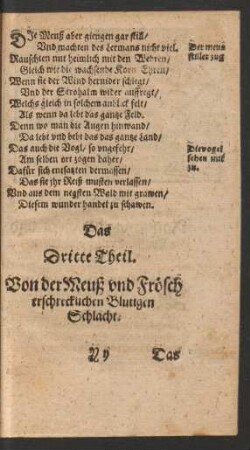 DJe Meuß aber giengen gar still/
Vnd machten des Lermans nicht viel.
Der meuß
stiller zug
Rauschten nur heimlich mit den Wehren/
Gleich wie die wachsende Korn Ehren/
Wenn sie der Wind hernider schlegt/
Vnd der Strohalm wider auffregt/
Welchs gleich in solchem anblick felt/
Als wenn da lebt das gantze Feld.
Denn wo man die Augen hinwand/
Da lebt vnd bebt das das gantze Land/
Das auch die Vögl/ so vngefehr/
Die vögel
sehen mit
zu.
Am selben ort zogen daher/
Dafür sich entsatzten dermassen/
Das sie jhr Reiß musten verlassen/
Vnd aus dem negsten Wald mit grawen/
Diesem wunder handel zu schawen.
Das
Dritte Theil.
Von der Meuß vnd Frösch
erschrecklichen Blutigen
Schlacht.
Y y
Das